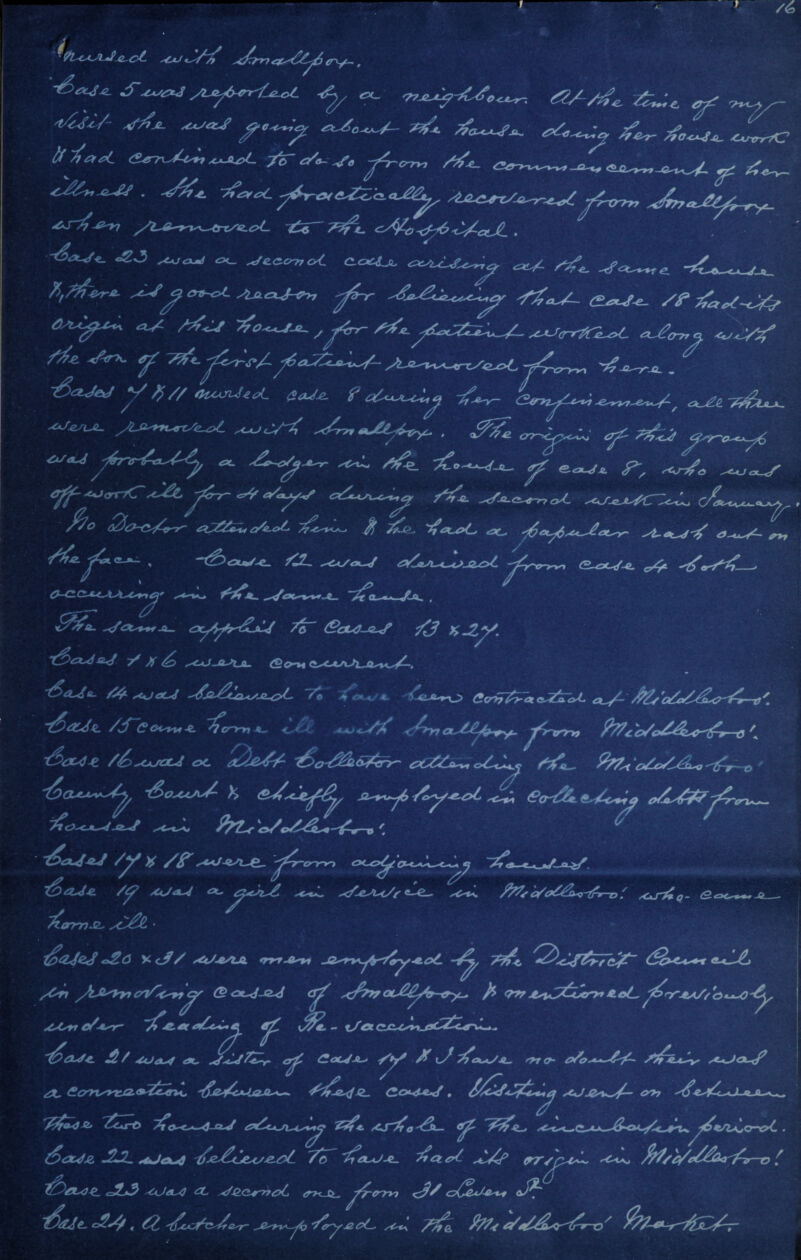 16
nursed with Smallpox.
Case 5 was reported by a neighbour. At the time of my
visit she was going about the house doing her house work
& had continued to do so from the commencement of her
illness. She had practically recovered from Smallpox
when removed to the Hospital.
Case 23 was a second case arising at the same house
&, there is good reason for believing that case 18 had its
origin at this house, for the patient worked along with
the son of the first patient removed from here.
Cases 7 & 11 nursed case 8 during her confinement, all three
were removed with Smallpox. The origin of this group
was probably a lodger in the house of case 8, who was
off work ill for 4 days during the second week in January.
No Doctor attended him & he had a papular rash out on
the face. Case 12 was derived from case 4 both
occurring in the same house.
The same applies to Cases 13 & 27.
Cases 1 & 6 were concurrent.
Case 14 was believed to have been contracted at Middlesbro'.
Case 15 came home ill with Smallpox from Middlesbro'.
Case 16 was a Debt Collector attending the Middlesbro'
County Court & chiefly employed in collecting debts from
houses in Middlesbro'.
Cases 17 & 18 were from adjoining houses.
Case 19 was a girl in service in Middlesbro' who came
home ill.
Cases 20 & 31 were men employed by the District Council
in removing cases of Smallpox & mentioned previously
under heading of Re-vaccination.
Case 21 was a sister of case 17 & I have no doubt their was
a connection between these cases. Visiting went on between
these two houses during the whole of the incubation period.
Case 22 was believed to have had its origin in Middlesbro'
Case 23 was a second one from 31 Leven St.
Case 24. A butcher employed in the Middlesbro' Market.